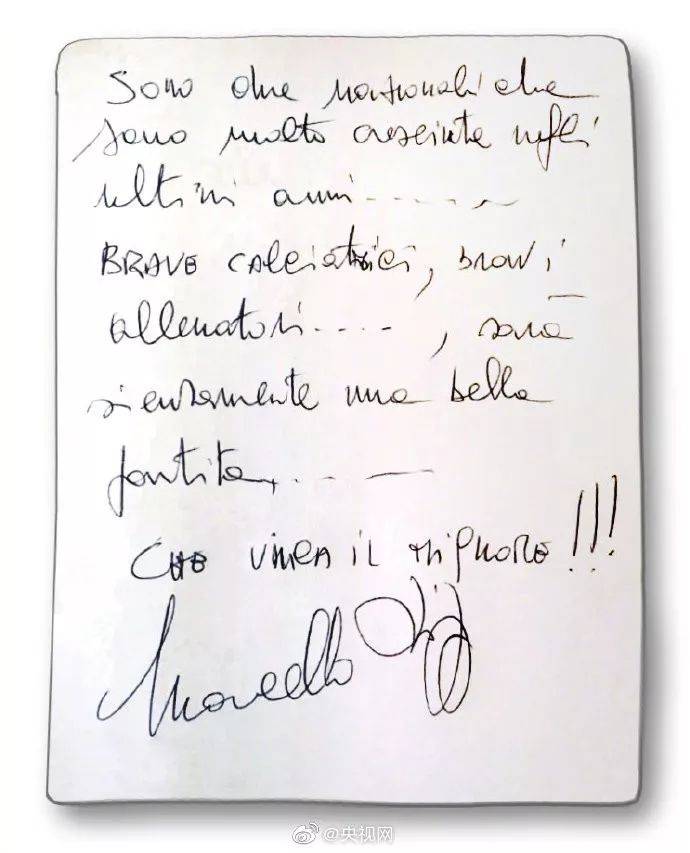 Sono due nazionali che
sono molto cresciute negli
ultimi anni.......
BRAVE CALCIATRICI, bravi
allenatori....., sarà
sicuramente una bella
partita,....
CHE VINCA IL MIGLIORE!!!
Marcello Lippi
@央视网